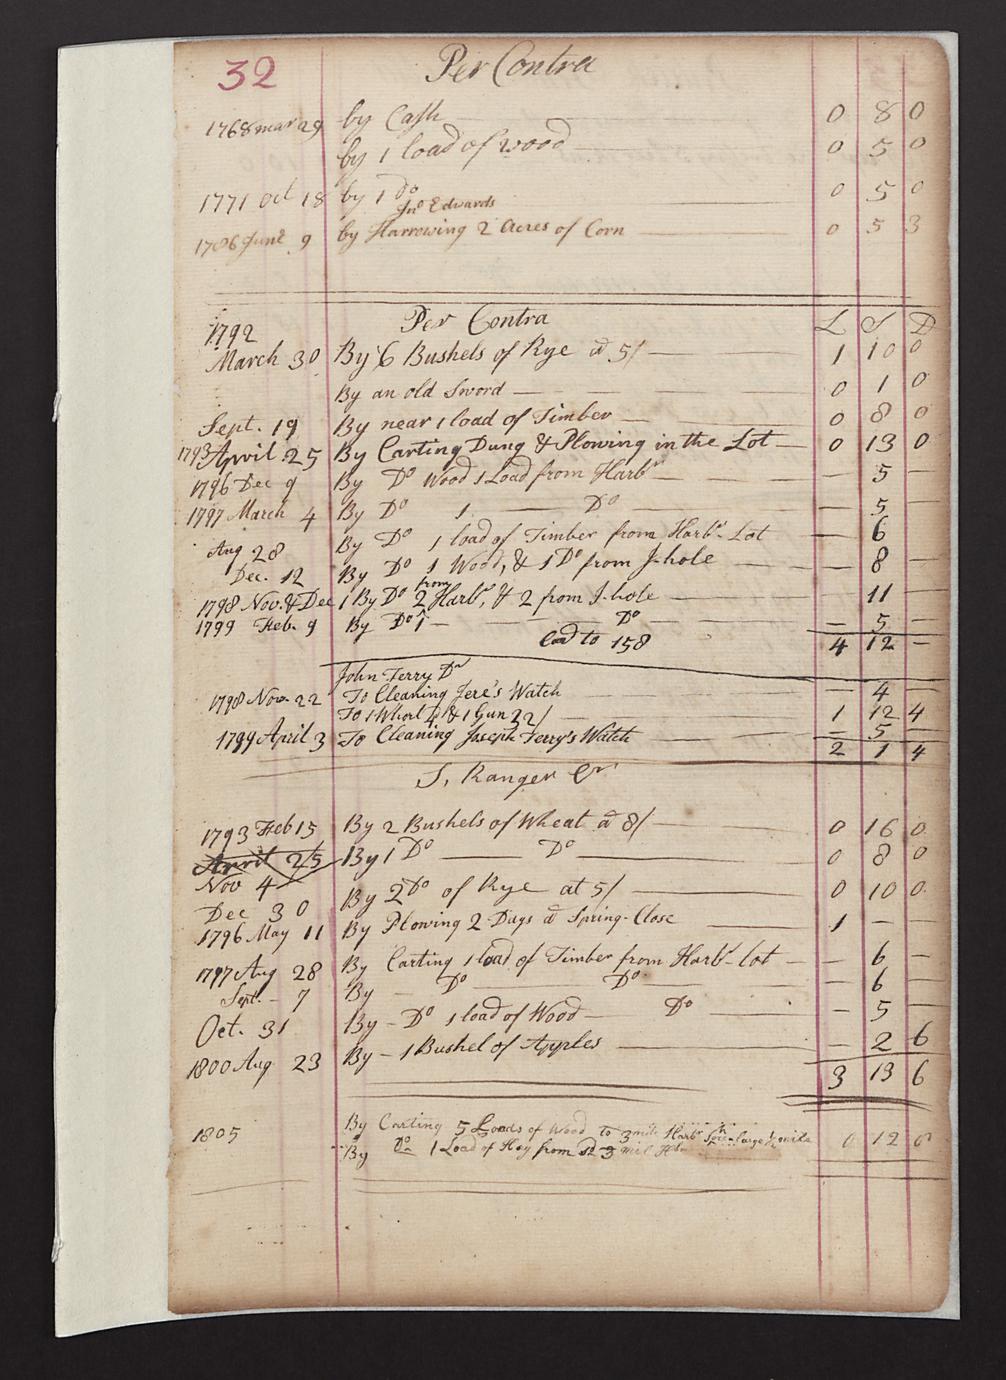 32 Per Contra
1768 mar 29 by Cash 0 8 0
by 1 load of wood 0 5 0
1771 Oct 18 by 1 Do 0 5 0
Jno Edwards
1786 June 9 by Harrowing 2 Acres of Corn 0 5 3
1792 Per Contra L S D
March 30 By 6 Bushels of Rye a 5/ 1 10 0
By an old Sword 0 1 0
Sept. 19 By near 1 load of Timber 0 8 0
1793 April 25 By Carting Dung & Plowing in the Lot 0 13 0
1796 Dec 9 By Do Wood 1 Load from Harbr — 5 —
1797 March 4 By Do 1 Do — 5 —
Aug 28 By Do 1 load of Timber from Harbr Lot — 6
Dec. 12 By Do 1 Wood, & 1 Do from J-hole — 8 —
from
1798 Nov. & Dec 1 By Do 2 Harbr, & 2 from J-hole — 11 —
1799 Feb. 9 By Do 1 — Do — 5 —
Cad to 158 4 12 —
John Terry Dr
1798 Nov. 22 To Cleaning Jere's Watch — 4 —
To 1 Whort 4/ & 1 Gun 22/ 1 12 4
1799 April 3 To Cleaning Joseph Terry's Watch — 5 —
2 1 4
S. Ranger Cr
1793 Feb 15 By 2 Bushels of Wheat a 8/ 0 16 0
April 25 By 1 Do Do 0 8 0
Nov 4
Dec 30 By 2 Do of Rye at 5/ 0 10 0
1796 May 11 By Plowing 2 Days a Spring-Close 1 — —
1797 Aug 28 By Carting 1 load of Timber from Harbr-lot — 6 —
Sept. 7 By — Do Do — 6 —
Oct. 31 By — Do 1 load of Wood — Do — 5 —
1800 Aug 23 By — 1 Bushel of Apples — 2 6
3 13 6
1805 By Carting 5 Loads of Wood to 3 mile Harbr large 0 12 6
By Do 1 Load of Hay from 3 mil Har